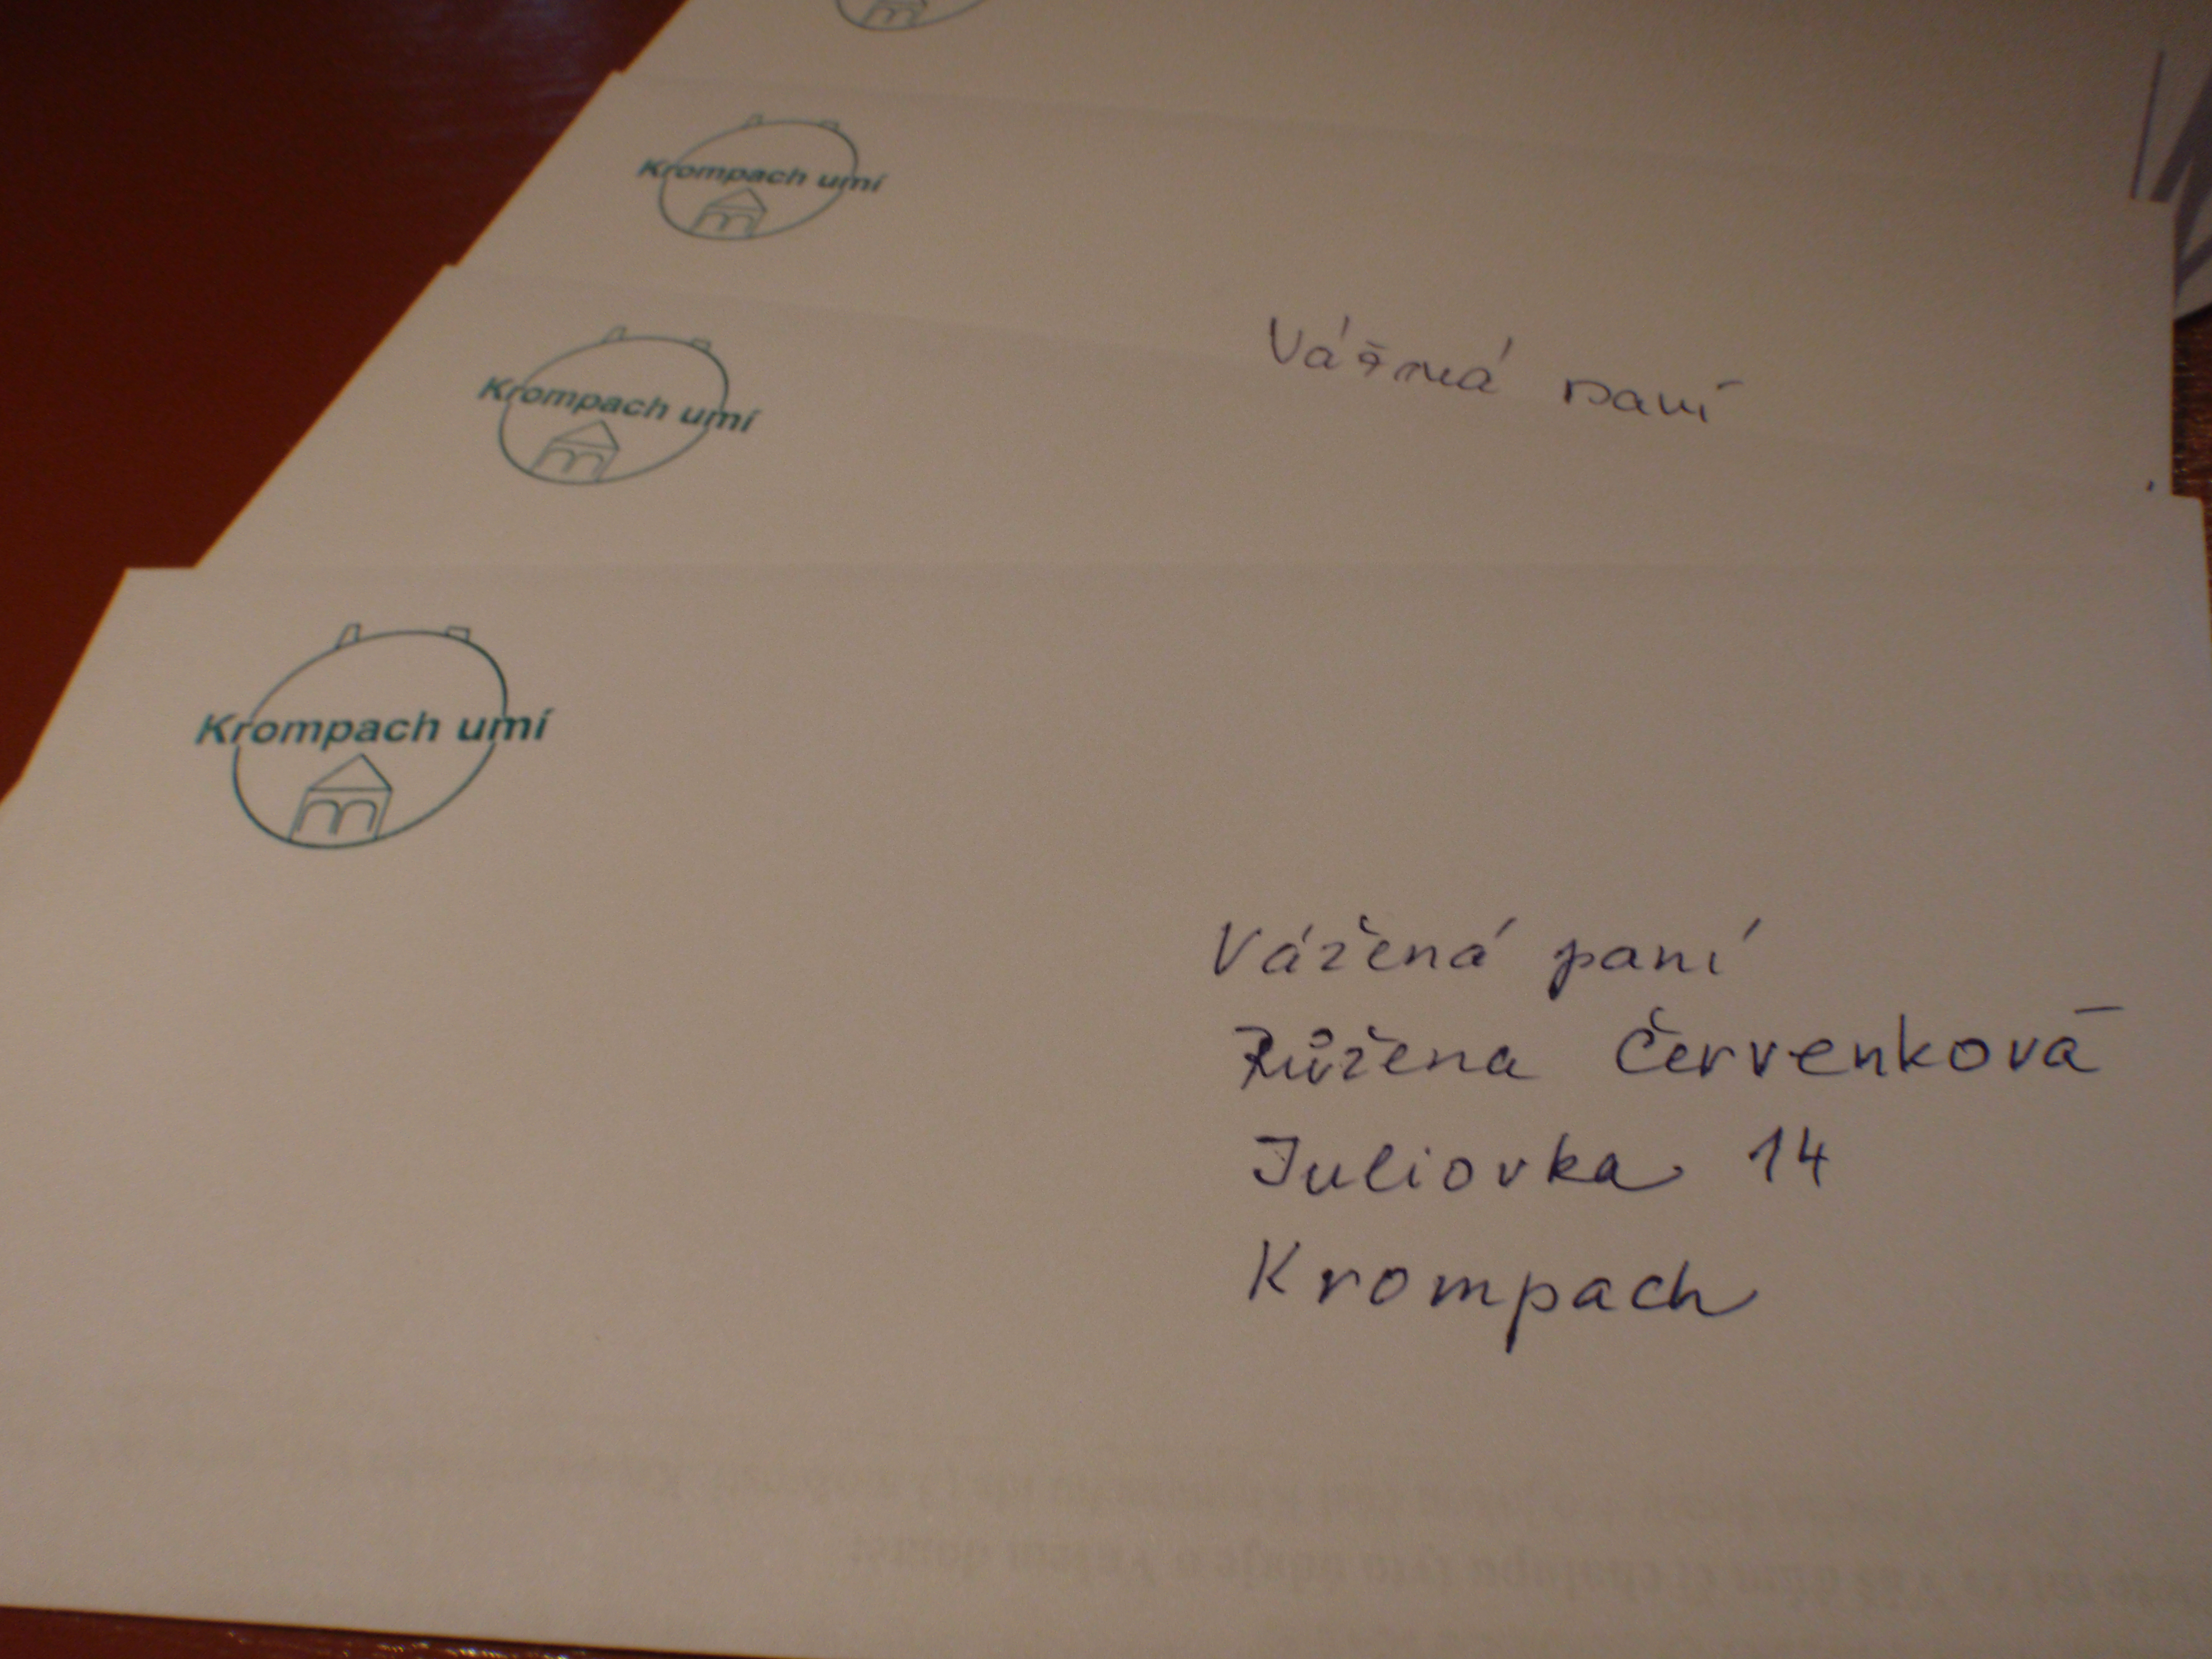 Krompach umí
Vážená paní
Krompach umí
Krompach umí
Vážená paní
Růžena Červenková
Juliovka 14
Krompach